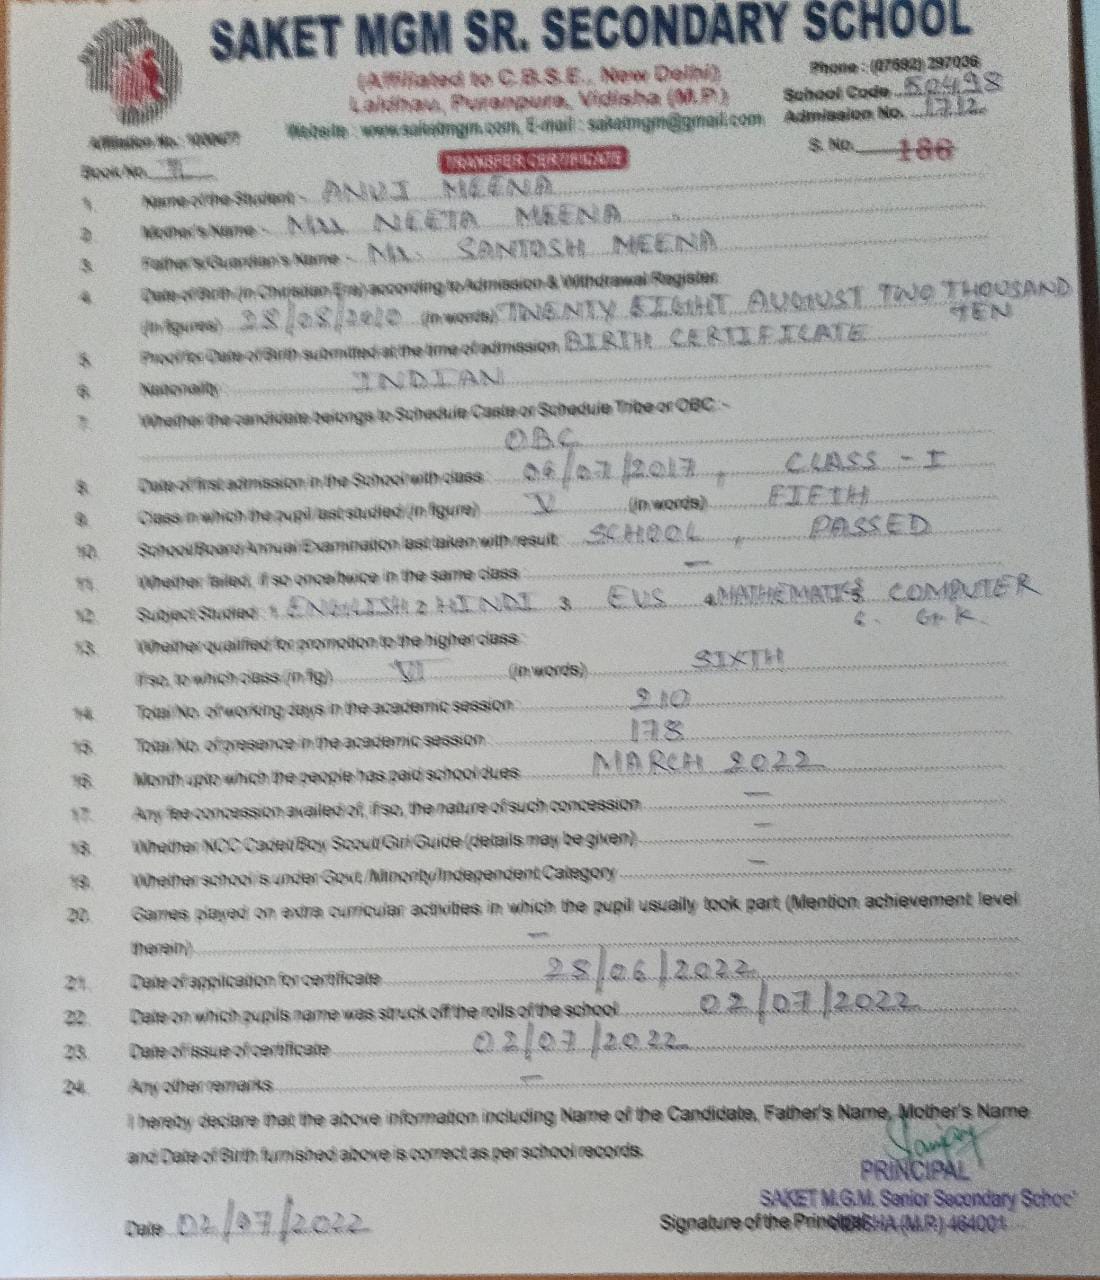 SAKET MGM SR. SECONDARY SCHOOL
(Affiliated to C.B.S.E., New Delhi)
Phone : (07592) 297036
Puranpura, Vidisha (M.P.)
School Code 50498
Admission No. 1712
Website : www.saketmgm.com, E-mail : saketmgm@gmail.com
Affiliation No.:
S. No. 186
Book No. II
TRANSFER CERTIFICATE
1. Name of the Student - ANUJ MEENA
2. Mother's Name - Mrs NEETA MEENA
3. Father's/Guardian's Name - Mr. SANTOSH MEENA
4. Date of Birth (in Christian Era) according to Admission & Withdrawal Register
(in figures) 28/08/2010 (in words) TWENTY EIGHT AUGUST TWO THOUSAND
TEN
5. Proof for Date of Birth submitted at the time of admission BIRTH CERTIFICATE
6. Nationality INDIAN
7. Whether the candidate belongs to Schedule Caste or Schedule Tribe or OBC :-
OBC
8. Date of first admission in the School with class 06/07/2017, CLASS - I
9. Class in which the pupil last studied (in figure) V (in words) FIFTH
10. School/Board Annual Examination last taken with result SCHOOL, PASSED
11. Whether failed, if so once/twice in the same class —
12. Subject Studied 1. ENGLISH 2 HINDI 3 EVS 4 MATHEMATICS 5 COMPUTER
6. G.K.
13. Whether qualified for promotion to the higher class
If so, to which class (in fig) VI (in words) SIXTH
14. Total No. of working days in the academic session 210
15. Total No. of presence in the academic session 178
16. Month upto which the people has paid school dues MARCH 2022
17. Any fee concession availed of, if so, the nature of such concession —
18. Whether NCC Cadet/Boy Scout/Girl Guide (details may be given) —
19. Whether school is under Govt./Minority/Independent Category —
20. Games played on extra curricular activities in which the pupil usually took part (Mention achievement level
therein) —
21. Date of application for certificate 28/06/2022
22. Date on which pupils name was struck off the rolls of the school 02/07/2022
23. Date of issue of certificate 02/07/2022
24. Any other remarks —
I hereby declare that the above information including Name of the Candidate, Father's Name, Mother's Name
and Date of Birth furnished above is correct as per school records.
PRINCIPAL
SAKET M.G.M. Senior Secondary School
Date 02/07/2022
Signature of the Principal
VIDISHA (M.P.) 464001